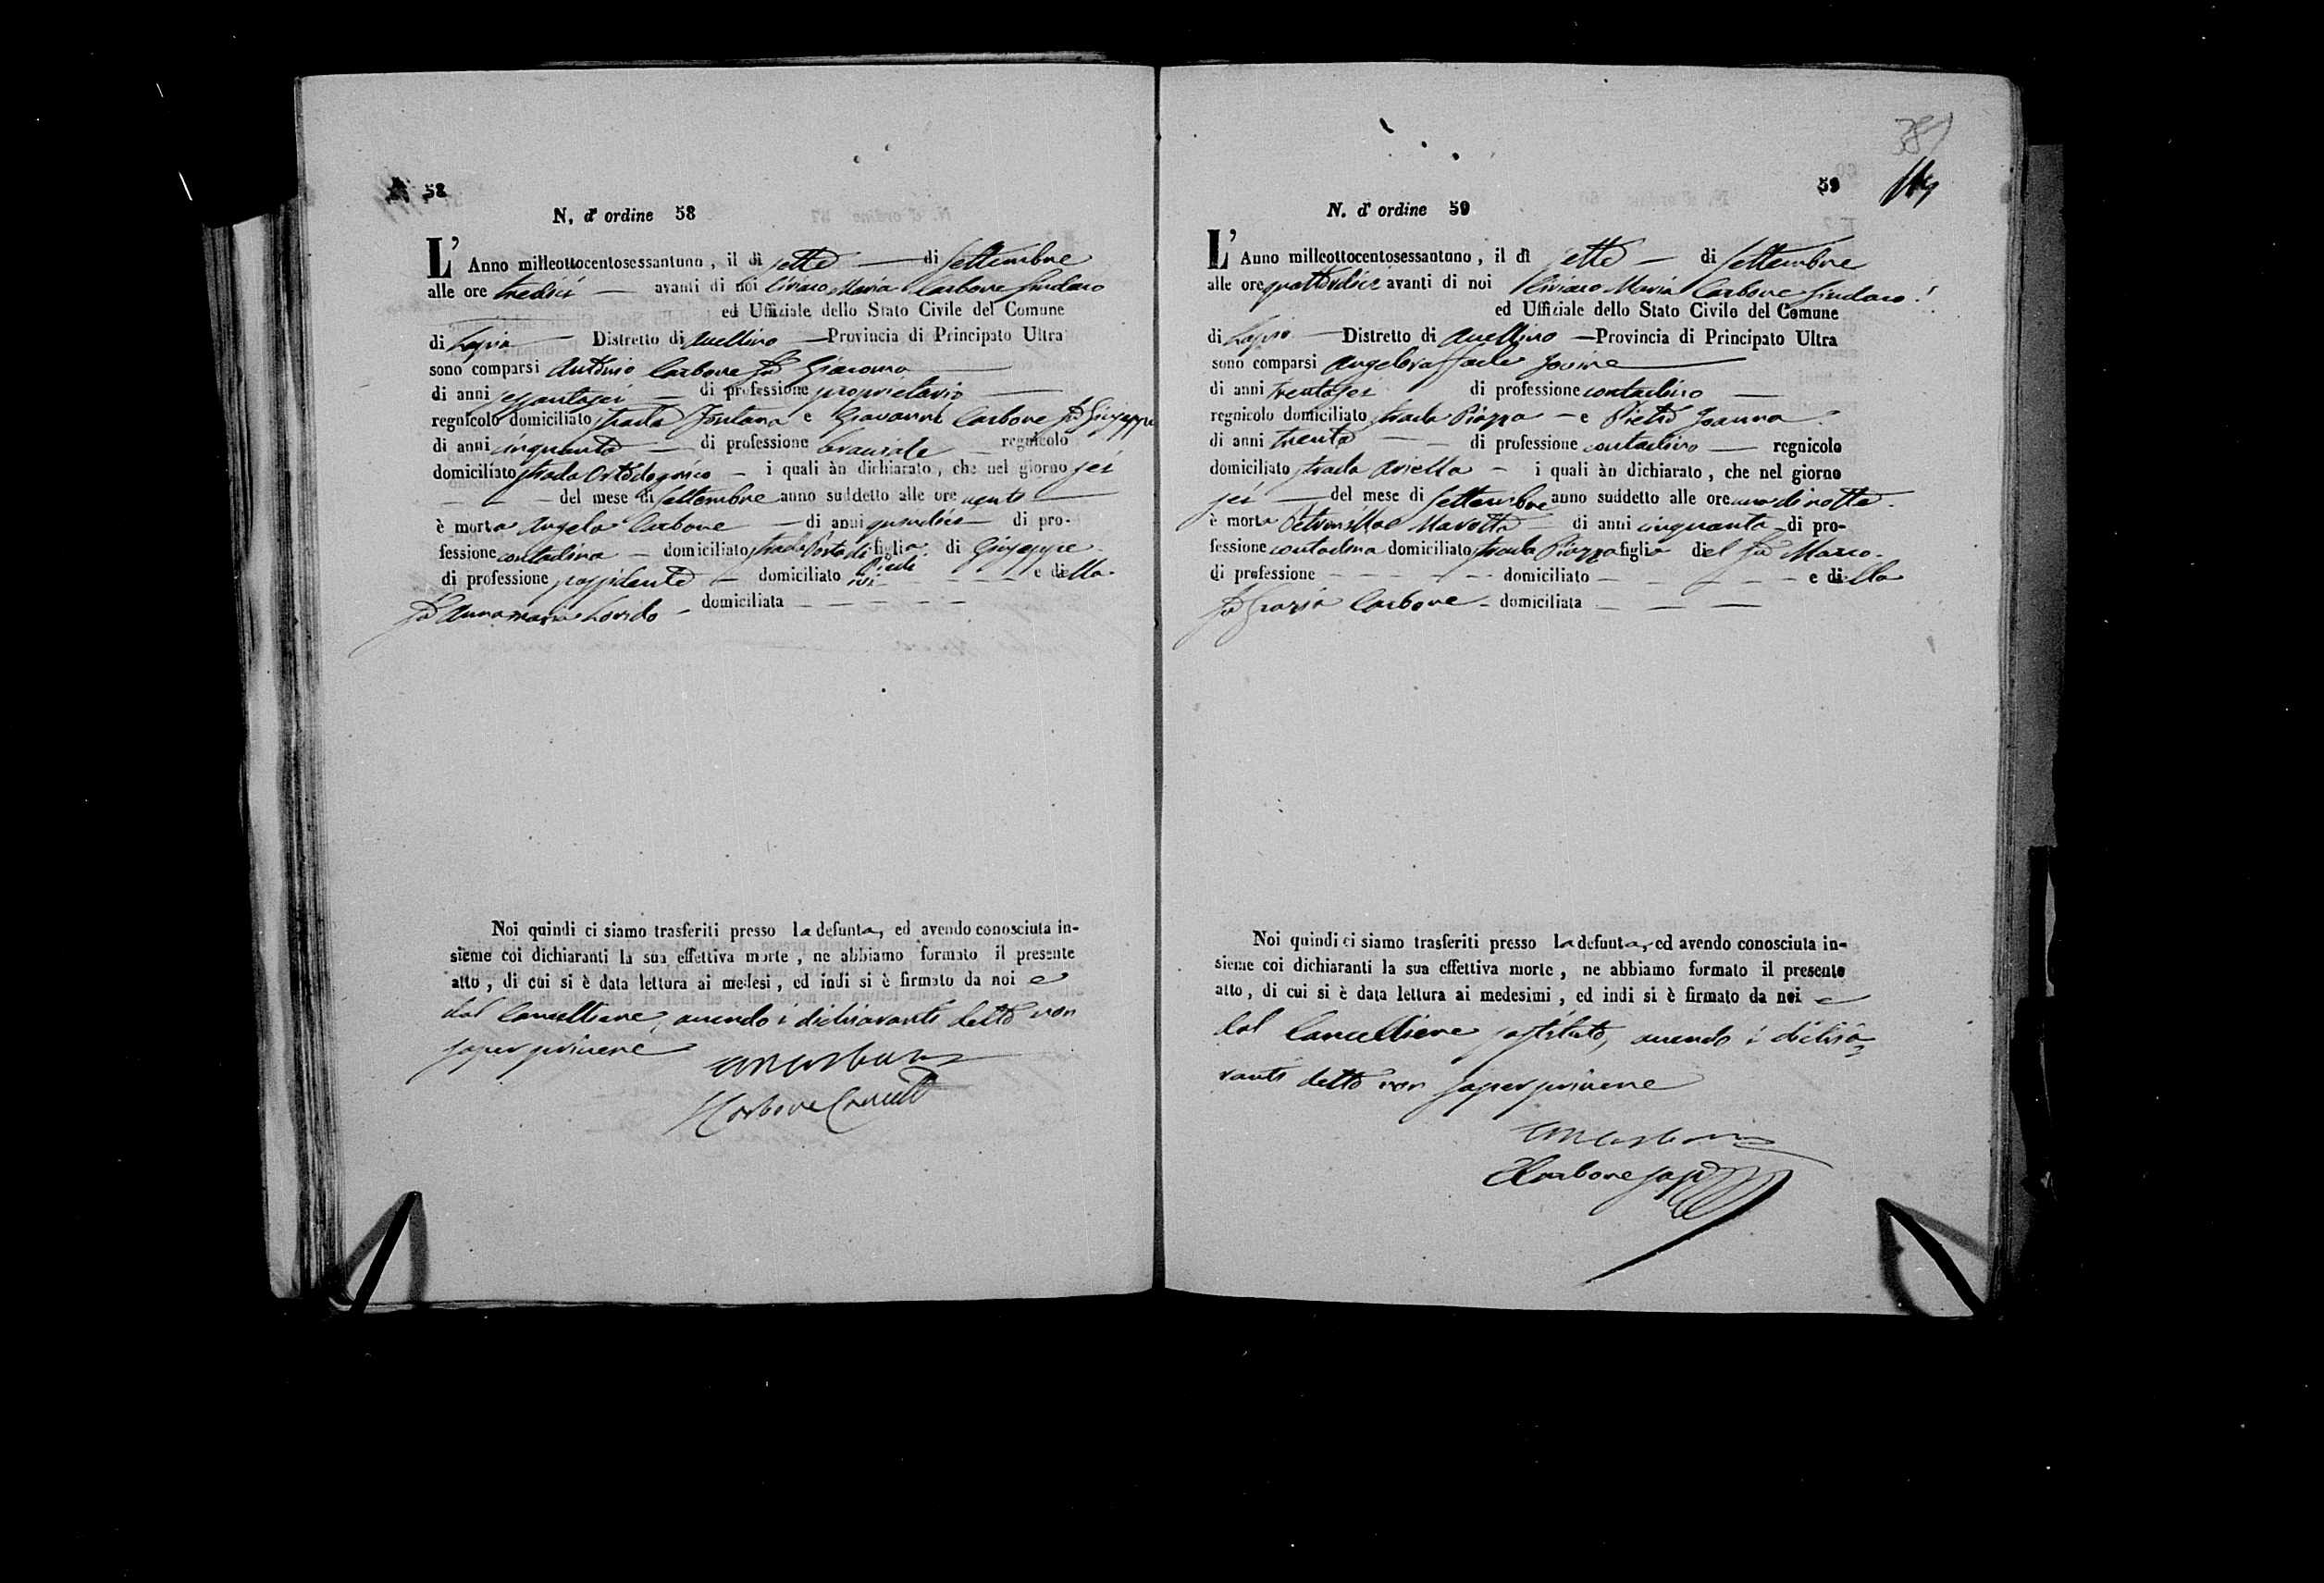 58
N. d' ordine 58
L' Anno milleottocentosessantuno, il dì sette di Settembre
alle ore tredici avanti di noi Ciriaco Maria Carbone Sindaco
ed Uffiziale dello Stato Civile del Comune
di Lapio Distretto di Avellino Provincia di Principato Ultra
sono comparsi Antonio Carbone fu Giacomo
di anni sessantasei di professione proprietario
regnicolo domiciliato strada Fontana e Giovanni Carbone fu Giuseppe
di anni cinquanta di professione bracciale regnicolo
domiciliato strada i quali àn dichiarato, che nel giorno sei
del mese di Settembre anno suddetto alle ore venti
è morta Angela Carbone di anni quindici di pro-
fessione contadina domiciliato strada Porta di figlia di Giuseppe
Piedi
di professione possidente domiciliato ivi e della
fu Annamaria domiciliata
Noi quindi ci siamo trasferiti presso la defunta, ed avendo conosciuta in-
sieme coi dichiaranti la sua effettiva morte, ne abbiamo formato il presente
atto, di cui si è data lettura ai medesi, ed indi si è firmato da noi e
dal Cancelliere, avendo i dichiaranti detto non
saper scrivere
Carbone Cancell
381
59
N. d' ordine 59
L' Anno milleottocentosessantuno, il dì sette di Settembre
alle ore quattordici avanti di noi Ciriaco Maria Carbone Sindaco
ed Uffiziale dello Stato Civile del Comune
di Lapio Distretto di Avellino Provincia di Principato Ultra
sono comparsi Angeloraffaele Iovine
di anni trentasei di professione contadino
regnicolo domiciliato strada Piazza e Pietro Ioanna
di anni trenta di professione contadino regnicolo
domiciliato strada Ariella i quali àn dichiarato, che nel giorno
sei del mese di Settembre anno suddetto alle ore una di notte
è morta Petronilla Marotta di anni cinquanta di pro-
fessione contadina domiciliato strada Piazza figlia del fu Marco
di professione domiciliato e della
fu Grazia Carbone domiciliata
Noi quindi ci siamo trasferiti presso la defunta, ed avendo conosciuta in-
sieme coi dichiaranti la sua effettiva morte, ne abbiamo formato il presente
atto, di cui si è data lettura ai medesimi, ed indi si è firmato da noi e
dal Cancelliere sostituto, avendo i dichia-
ranti detto non saper scrivere
Carbone